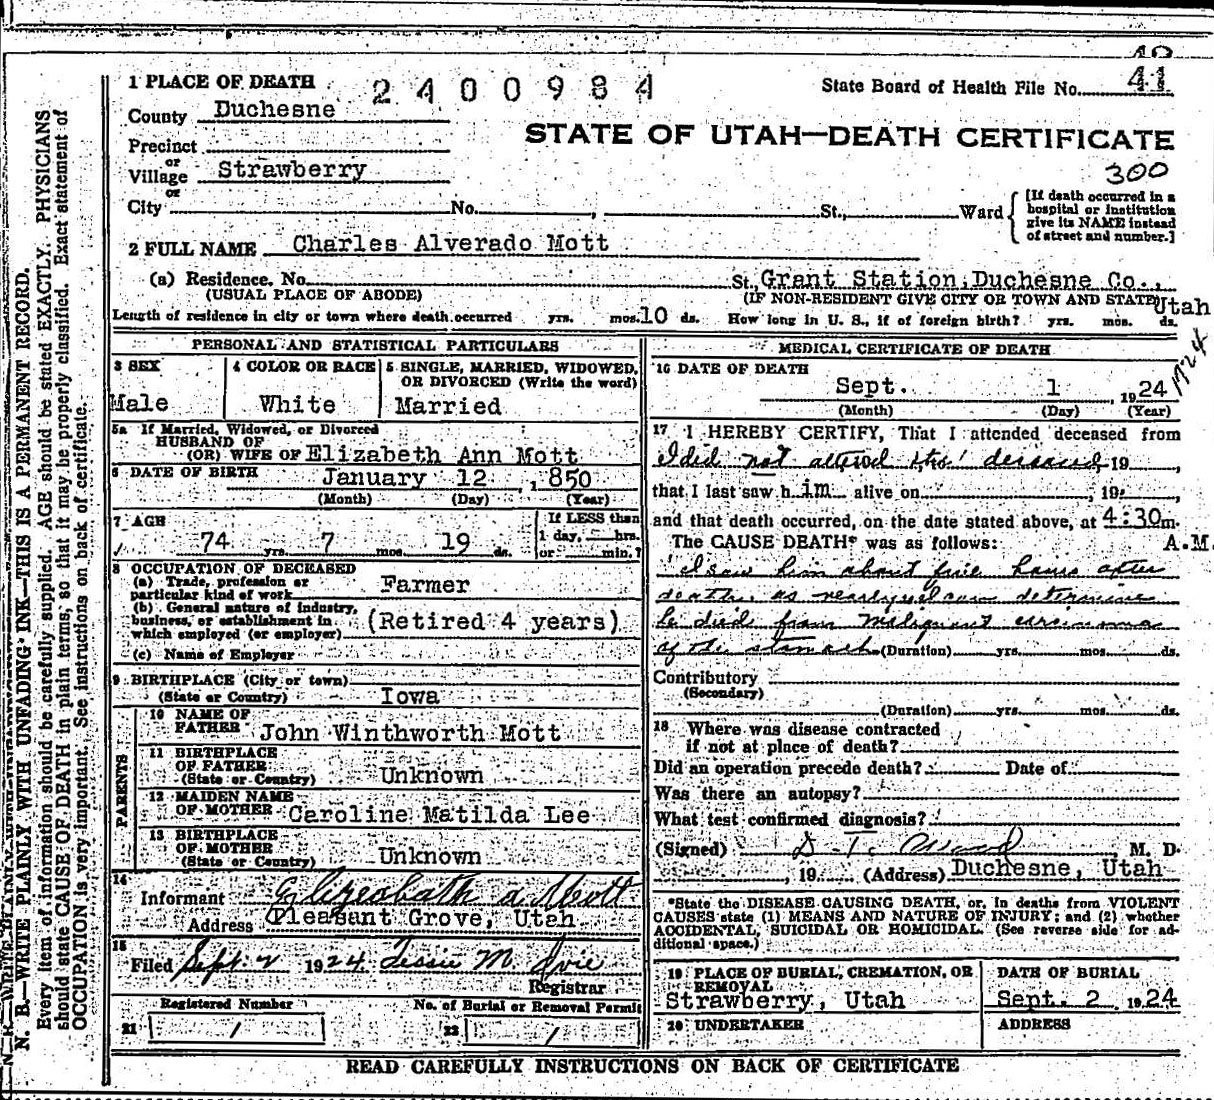 1 PLACE OF DEATH 2400984 State Board of Health File No. 41
County Duchesne
STATE OF UTAH—DEATH CERTIFICATE
Precinct
or
Village Strawberry 300
or
City No. , St., Ward { [If death occurred in a hospital or institution give its NAME instead of street and number.]
2 FULL NAME Charles Alverado Mott
(a) Residence. No. St. Grant Station, Duchesne Co., Utah
(USUAL PLACE OF ABODE) (IF NON-RESIDENT GIVE CITY OR TOWN AND STATE)
Length of residence in city or town where death occurred yrs. mos. 10 ds. How long in U. S., if of foreign birth? yrs. mos. ds.
PERSONAL AND STATISTICAL PARTICULARS
3 SEX 4 COLOR OR RACE 5 SINGLE, MARRIED, WIDOWED, OR DIVORCED (Write the word)
Male White Married
5a If Married, Widowed, or Divorced
HUSBAND OF
(OR) WIFE OF Elizabeth Ann Mott
6 DATE OF BIRTH January 12 , 1850
(Month) (Day) (Year)
7 AGE If LESS than
74 yrs. 7 mos. 19 ds. 1 day, hrs.
or min.?
8 OCCUPATION OF DECEASED
(a) Trade, profession or
particular kind of work Farmer
(b) General nature of industry,
business, or establishment in
which employed (or employer) (Retired 4 years)
(c) Name of Employer
9 BIRTHPLACE (City or town)
(State or Country) Iowa
PARENTS
10 NAME OF
FATHER John Winthworth Mott
11 BIRTHPLACE
OF FATHER
(State or Country) Unknown
12 MAIDEN NAME
OF MOTHER Caroline Matilda Lee
13 BIRTHPLACE
OF MOTHER
(State or Country) Unknown
14
Informant Elizeabath a Mott
Address Pleasant Grove, Utah
15
Filed Sept. 2 1924 Tessie M. Ivie
Registrar
Registered Number No. of Burial or Removal Permit
21 1 22 1
MEDICAL CERTIFICATE OF DEATH
16 DATE OF DEATH 1924
Sept. 1 1924
(Month) (Day) (Year)
17 I HEREBY CERTIFY, That I attended deceased from
I did not attend this deceased 19 ,
that I last saw him alive on , 19 ,
and that death occurred, on the date stated above, at 4:30 m.
The CAUSE DEATH* was as follows: A.M.
I saw him about five hours after
death, as nearly as I can determine
he died from Malignant carcinoma
of the stomach (Duration) yrs. mos. ds.
Contributory
(Secondary)
(Duration) yrs. mos. ds.
18 Where was disease contracted
if not at place of death?
Did an operation precede death? Date of
Was there an autopsy?
What test confirmed diagnosis?
(Signed) D. T. , M. D.
, 19 (Address) Duchesne, Utah
*State the DISEASE CAUSING DEATH, or, in deaths from VIOLENT
CAUSES state (1) MEANS AND NATURE OF INJURY; and (2) whether
ACCIDENTAL, SUICIDAL OR HOMICIDAL. (See reverse side for ad-
ditional space.)
19 PLACE OF BURIAL, CREMATION, OR REMOVAL DATE OF BURIAL
Strawberry, Utah Sept. 2 1924
20 UNDERTAKER ADDRESS
READ CAREFULLY INSTRUCTIONS ON BACK OF CERTIFICATE
N. B.—WRITE PLAINLY WITH UNFADING INK—THIS IS A PERMANENT RECORD.
Every item of information should be carefully supplied. AGE should be stated EXACTLY. PHYSICIANS
should state CAUSE OF DEATH in plain terms, so that it may be properly classified. Exact statement of
OCCUPATION is very important. See instructions on back of certificate.